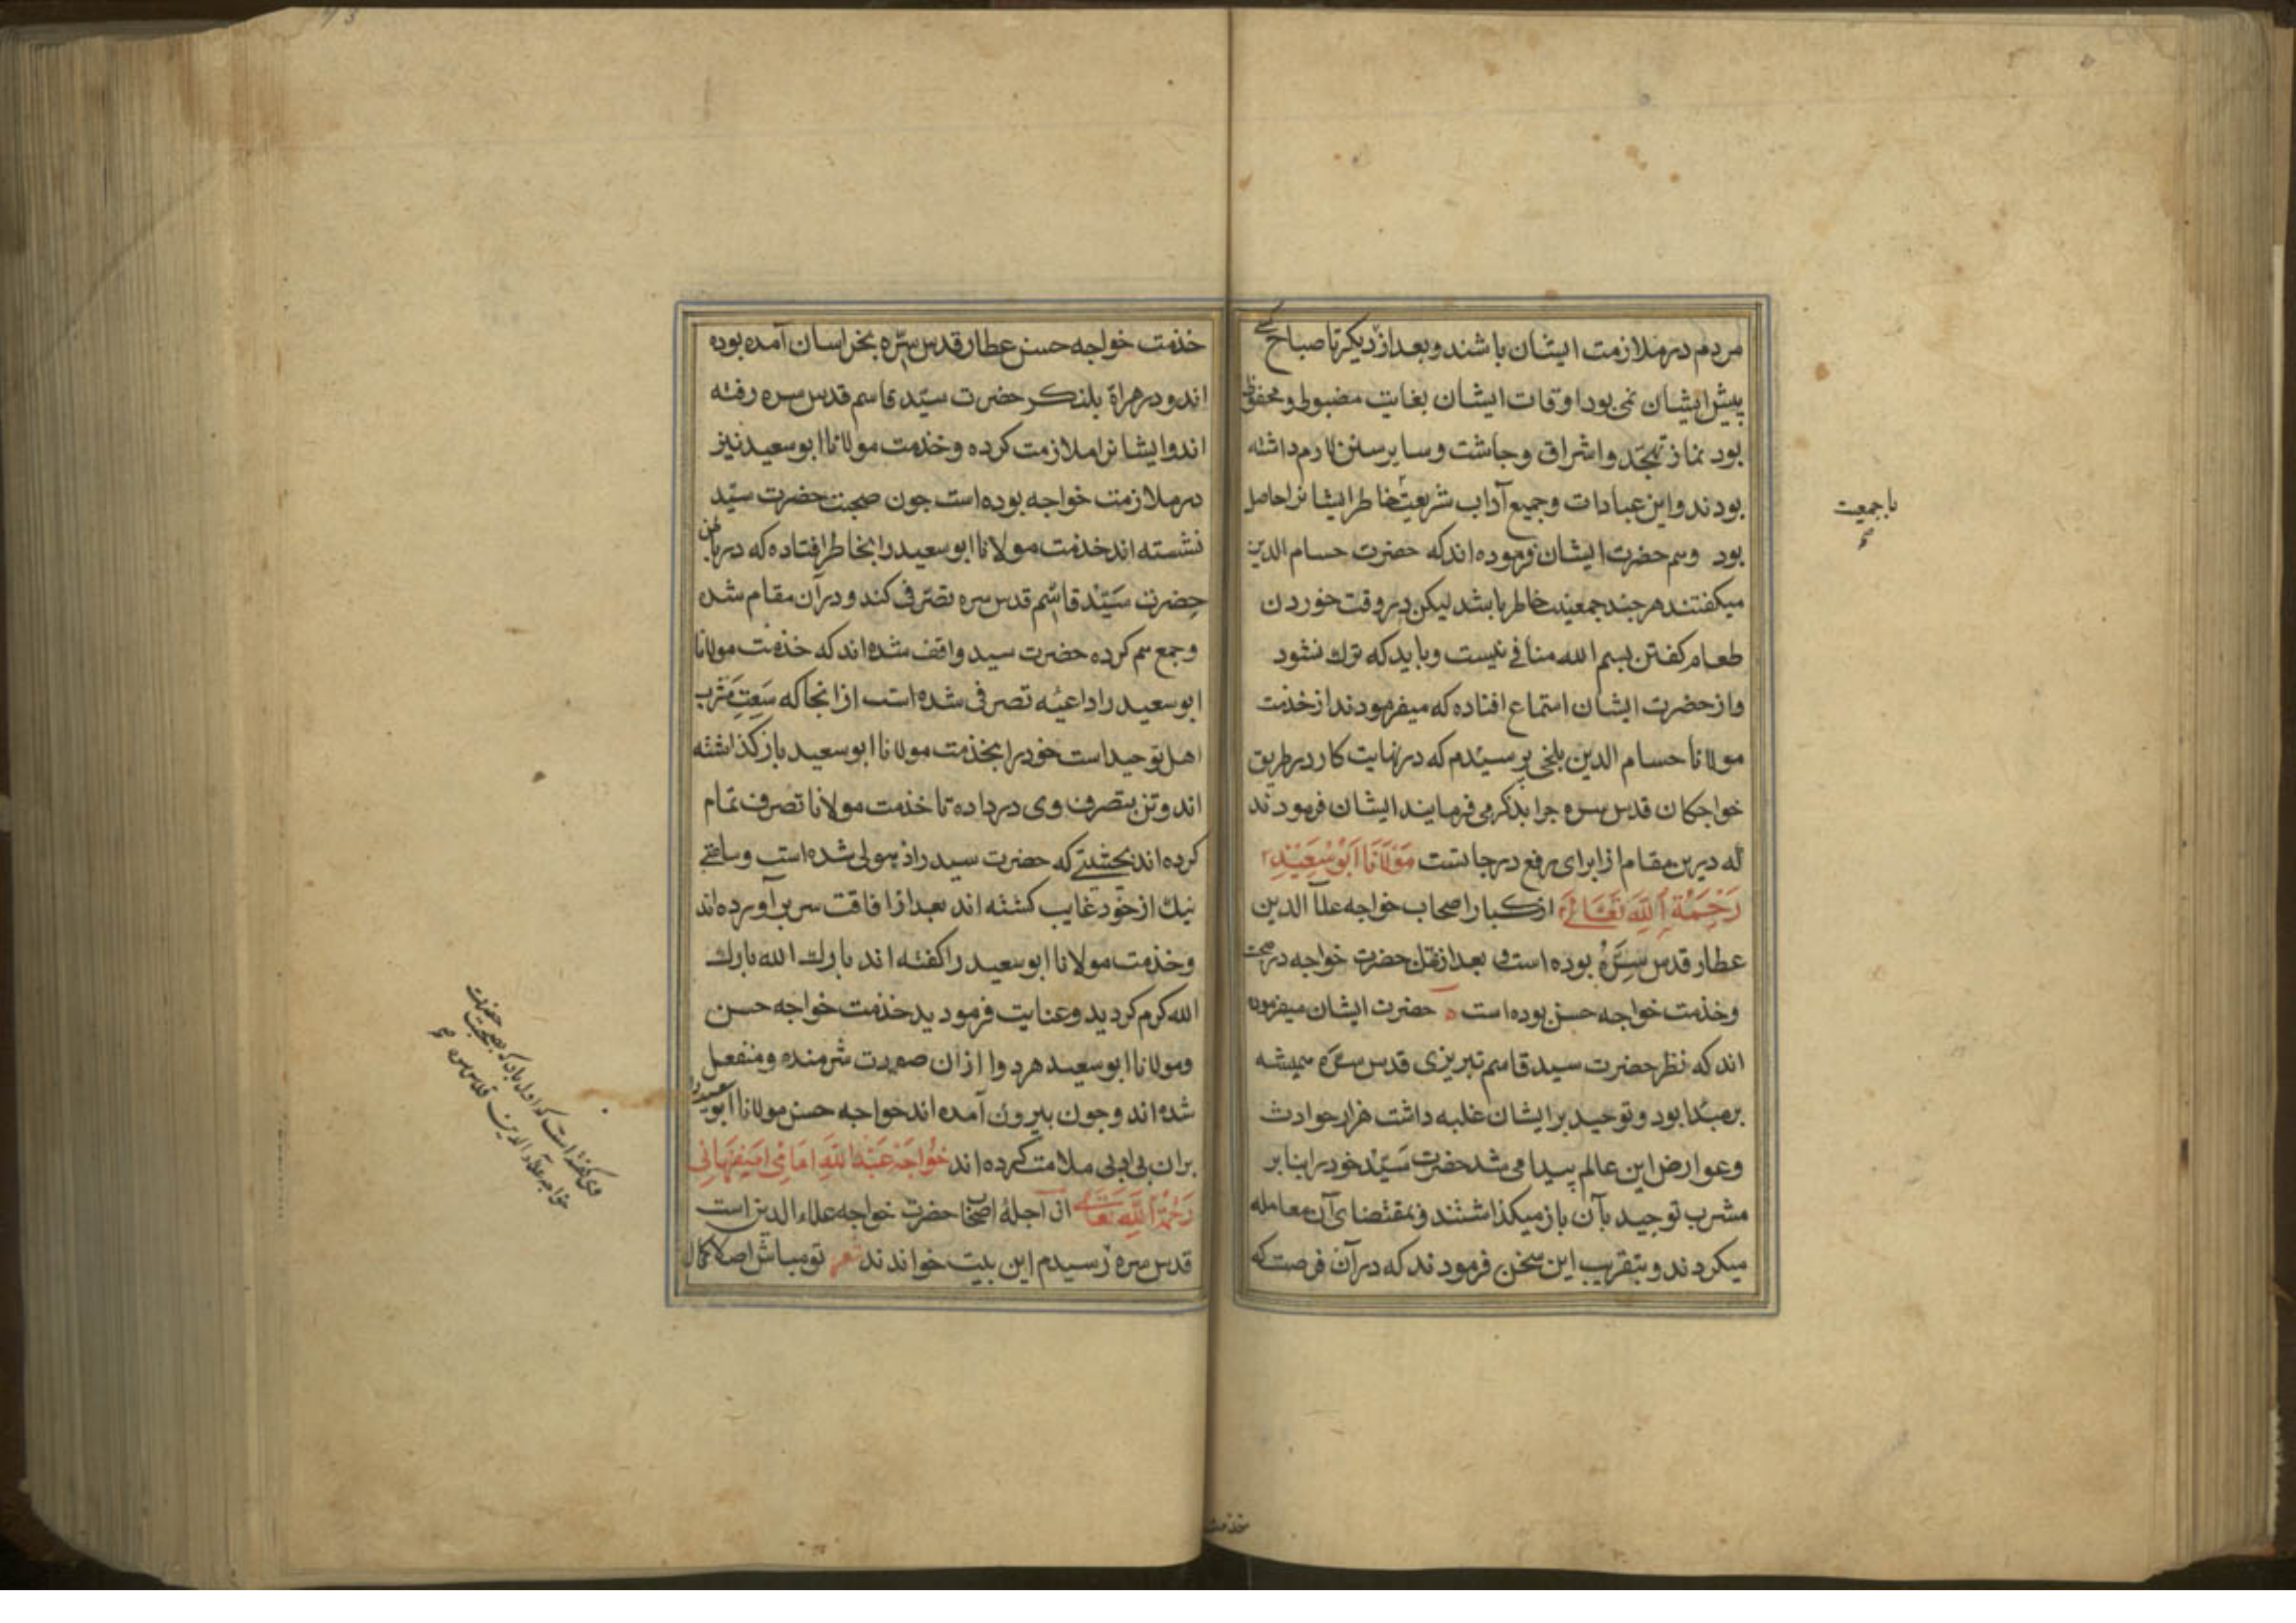 مردم در ملازمت ایشان باشند و بعد از دیکر تا صباح کسی
پیش ایشان نمی بود اوقات ایشان بغایت مضبوط و محفوظ
بود نماز تهجّد و اشراق و چاشت و سایر سنن لازم داشته
بودند و این عبادات و جمیع آداب شریعت خاطر ایشانرا حاصل
بود و هم حضرت ایشان فرموده اند که حضرت حسام الدین
میکفتند هر چند جمعیت خاطر باشد لیکن در وقت خوردن
طعام کفتن بسم الله منافی نیست و باید که ترک نشود
و از حضرت ایشان استماع افتاده که میفرمودند از خذمت
مولانا حسام الدین بلخی پرسیدم که در نهایت کار در طریق
خواجکان قدس سره چرا بذکر می فرمایند ایشان فرمودند
که درین مقام از برای رفع درجاتست مَوْلَانَا اَبُوْسَعِیْدِ
رَحْمَةُ اللَّهِ تَعَالٰی از کبار اصحاب خواجه علآ الدین
عطار قدس سِرَّهُ بوده است و بعد از نقل حضرت خواجه در صحبت
و خذمت خواجه حسن بوده است ه حضرت ایشان میفرموده
اند که نظر حضرت سید قاسم تبریزی قدس سرّه همیشه
بر مبدا بود و توحید بر ایشان غلبه داشت هزار حوادث
و عوارض این عالم پیدا می شد حضرت سَیّد خود را بنا بر
مشرب توحید بآن باز میکذاشتند و بمقتضای آن معامله
میکردند و بتقریب این سخن فرمودند که در آن فرصت که
با جمعیت
صح
خذمت
خذمت خواجه حسن عطار قدس سّره بخراسان آمده بوده
اند و در هراة بلنکر حضرت سیّد قاسم قدس سره رفته
اند و ایشانرا ملازمت کرده و خذمت مولانا ابو سعید نیز
در ملازمت خواجه بوده است چون صحبت حضرت سیّد
نشسته اند خذمت مولانا ابو سعید را بخاطر افتاده که در باطن
حضرت سَیّد قاسم قدس سره تصّرفی کند و در آن مقام شده
و جمع هم کرده حضرت سید واقف شده اند که خذمت مولانا
ابو سعید را داعیه تصرفی شده است از انجا که سَعتِ مَشرب
اهل توحید است خود را بخذمت مولانا ابو سعید باز کذاشته
اند و تن بتصرف وی در داده تا خذمت مولانا تصرف تمام
کرده اند بحیثیتی که حضرت سید را ذهولی شده است و ساعتی
نیک از خود غایب کشته اند بعد از افاقت سر بر آورده اند
و خذمت مولانا ابو سعید را کفته اند بارک الله بارک
الله کرم کردید و عنایت فرمودید خذمت خواجه حسن
و مولانا ابو سعید هر دو ازان صورت شرمنده و منفعل
شده اند و چون بیرون آمده اند خواجه حسن مولانا ابو سعید را
بران بی ادبی ملامت کرده اند خَواجَه عَبْدُ اللَّهِ اِمَامِی اِصفَهَانِی
رَحْمَةُ اللَّهِ تعالی از اجلهٔ اصحاب حضرت خواجه علاء الدین است
قدس سره رسیدم این بیت خواندند شعر تو مباش اصلا کمال
وی کفته است که اول بار که بصحبت حضرت
خواجه علاء الدین قدس سره
صح